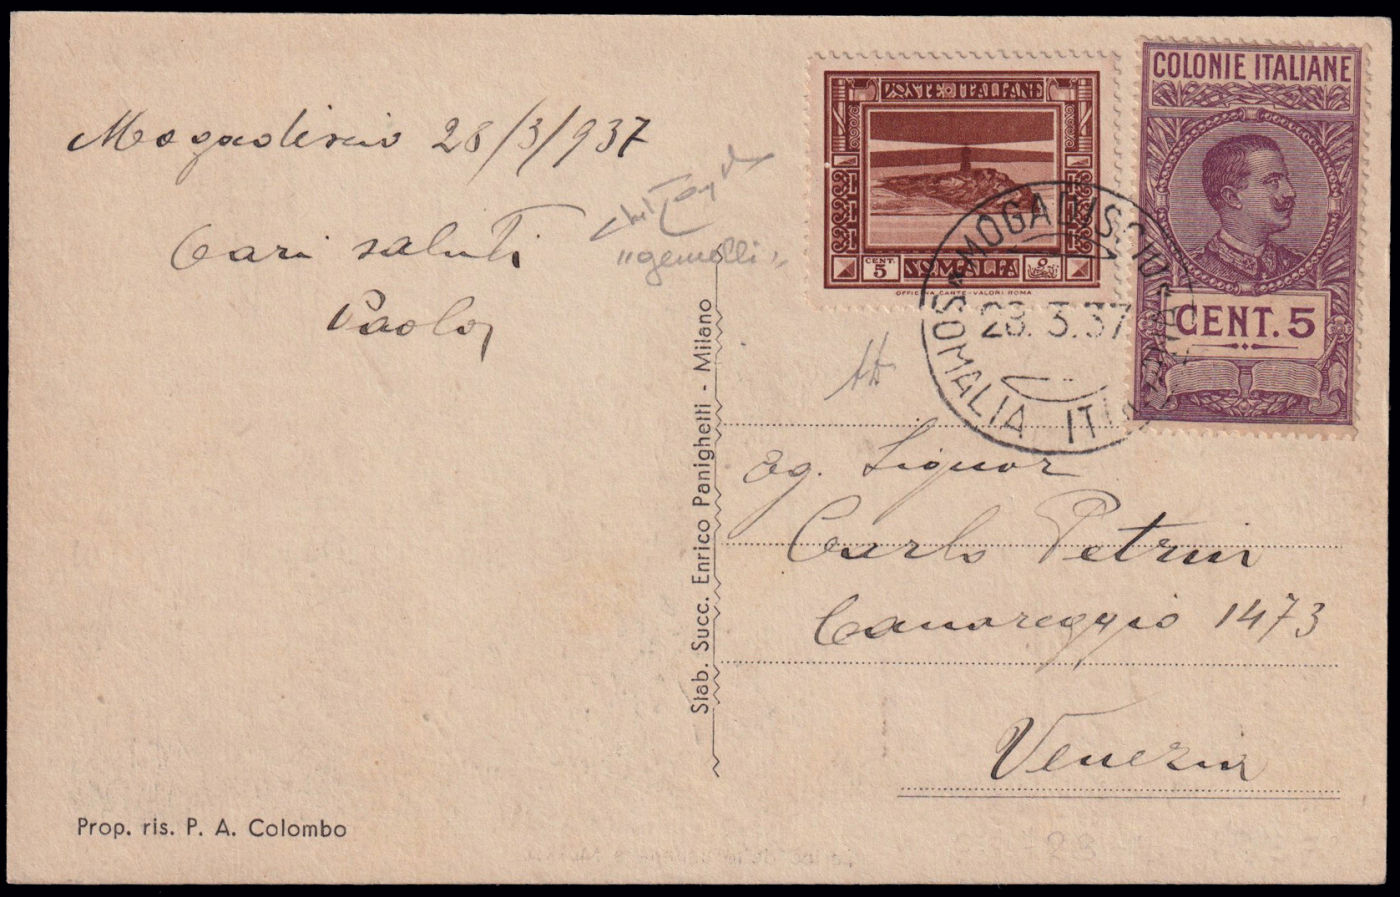 Mogadiscio 28/3/937
Cari saluti
Paolo
"gemelli"
Prop. ris. P. A. Colombo
Stab. Succ. Enrico Panighetti - Milano
POSTE ITALIANE
CENT. 5
SOMALIA
OFFICINA CARTE-VALORI ROMA
COLONIE ITALIANE
CENT. 5
MOGADISCIO
28.3.37
SOMALIA ITALIANA
Eg. Signor
Carlo Petrin
Canareggio 1473
Venezia